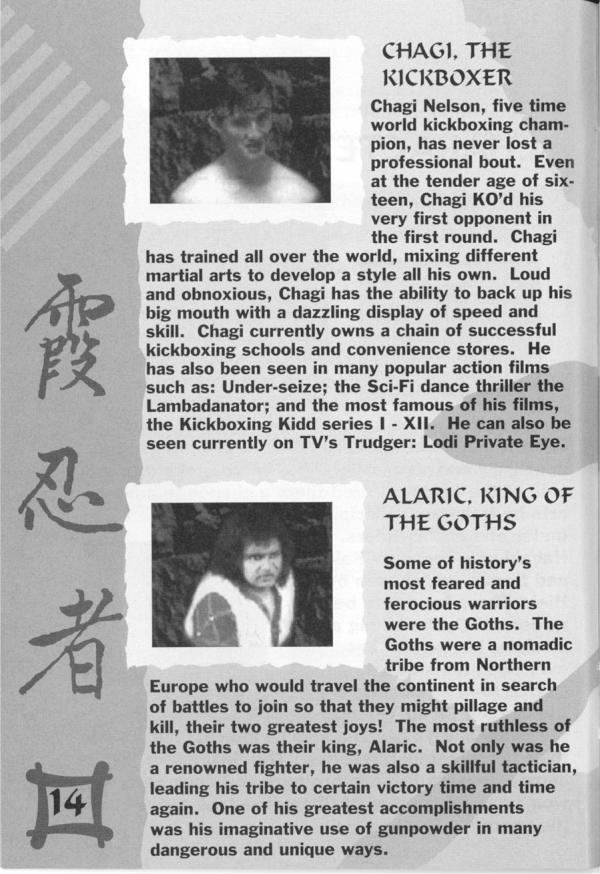 CHAGI, THE
KICKBOXER
Chagi Nelson, five time
world kickboxing cham-
pion, has never lost a
professional bout. Even
at the tender age of six-
teen, Chagi KO'd his
very first opponent in
the first round. Chagi
has trained all over the world, mixing different
martial arts to develop a style all his own. Loud
and obnoxious, Chagi has the ability to back up his
big mouth with a dazzling display of speed and
skill. Chagi currently owns a chain of successful
kickboxing schools and convenience stores. He
has also been seen in many popular action films
such as: Under-seize; the Sci-Fi dance thriller the
Lambadanator; and the most famous of his films,
the Kickboxing Kidd series I - XII. He can also be
seen currently on TV's Trudger: Lodi Private Eye.
ALARIC, KING OF
THE GOTHS
Some of history's
most feared and
ferocious warriors
were the Goths. The
Goths were a nomadic
tribe from Northern
Europe who would travel the continent in search
of battles to join so that they might pillage and
kill, their two greatest joys! The most ruthless of
the Goths was their king, Alaric. Not only was he
a renowned fighter, he was also a skillful tactician,
leading his tribe to certain victory time and time
again. One of his greatest accomplishments
was his imaginative use of gunpowder in many
dangerous and unique ways.
霞
忍
者
14